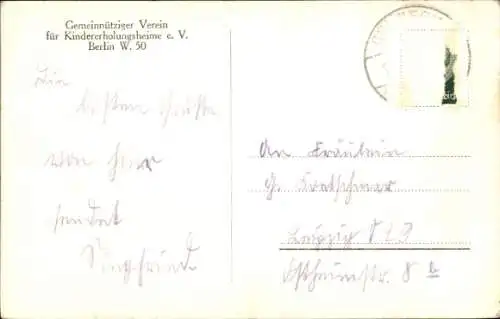 Gemeinnütziger Verein
für Kindererholungsheime e. V.
Berlin W. 50
Die
besten Grüße
von hier
sendet
Siegfried
An Fräulein
G. Kretschmar
Leipzig O 29
8 b